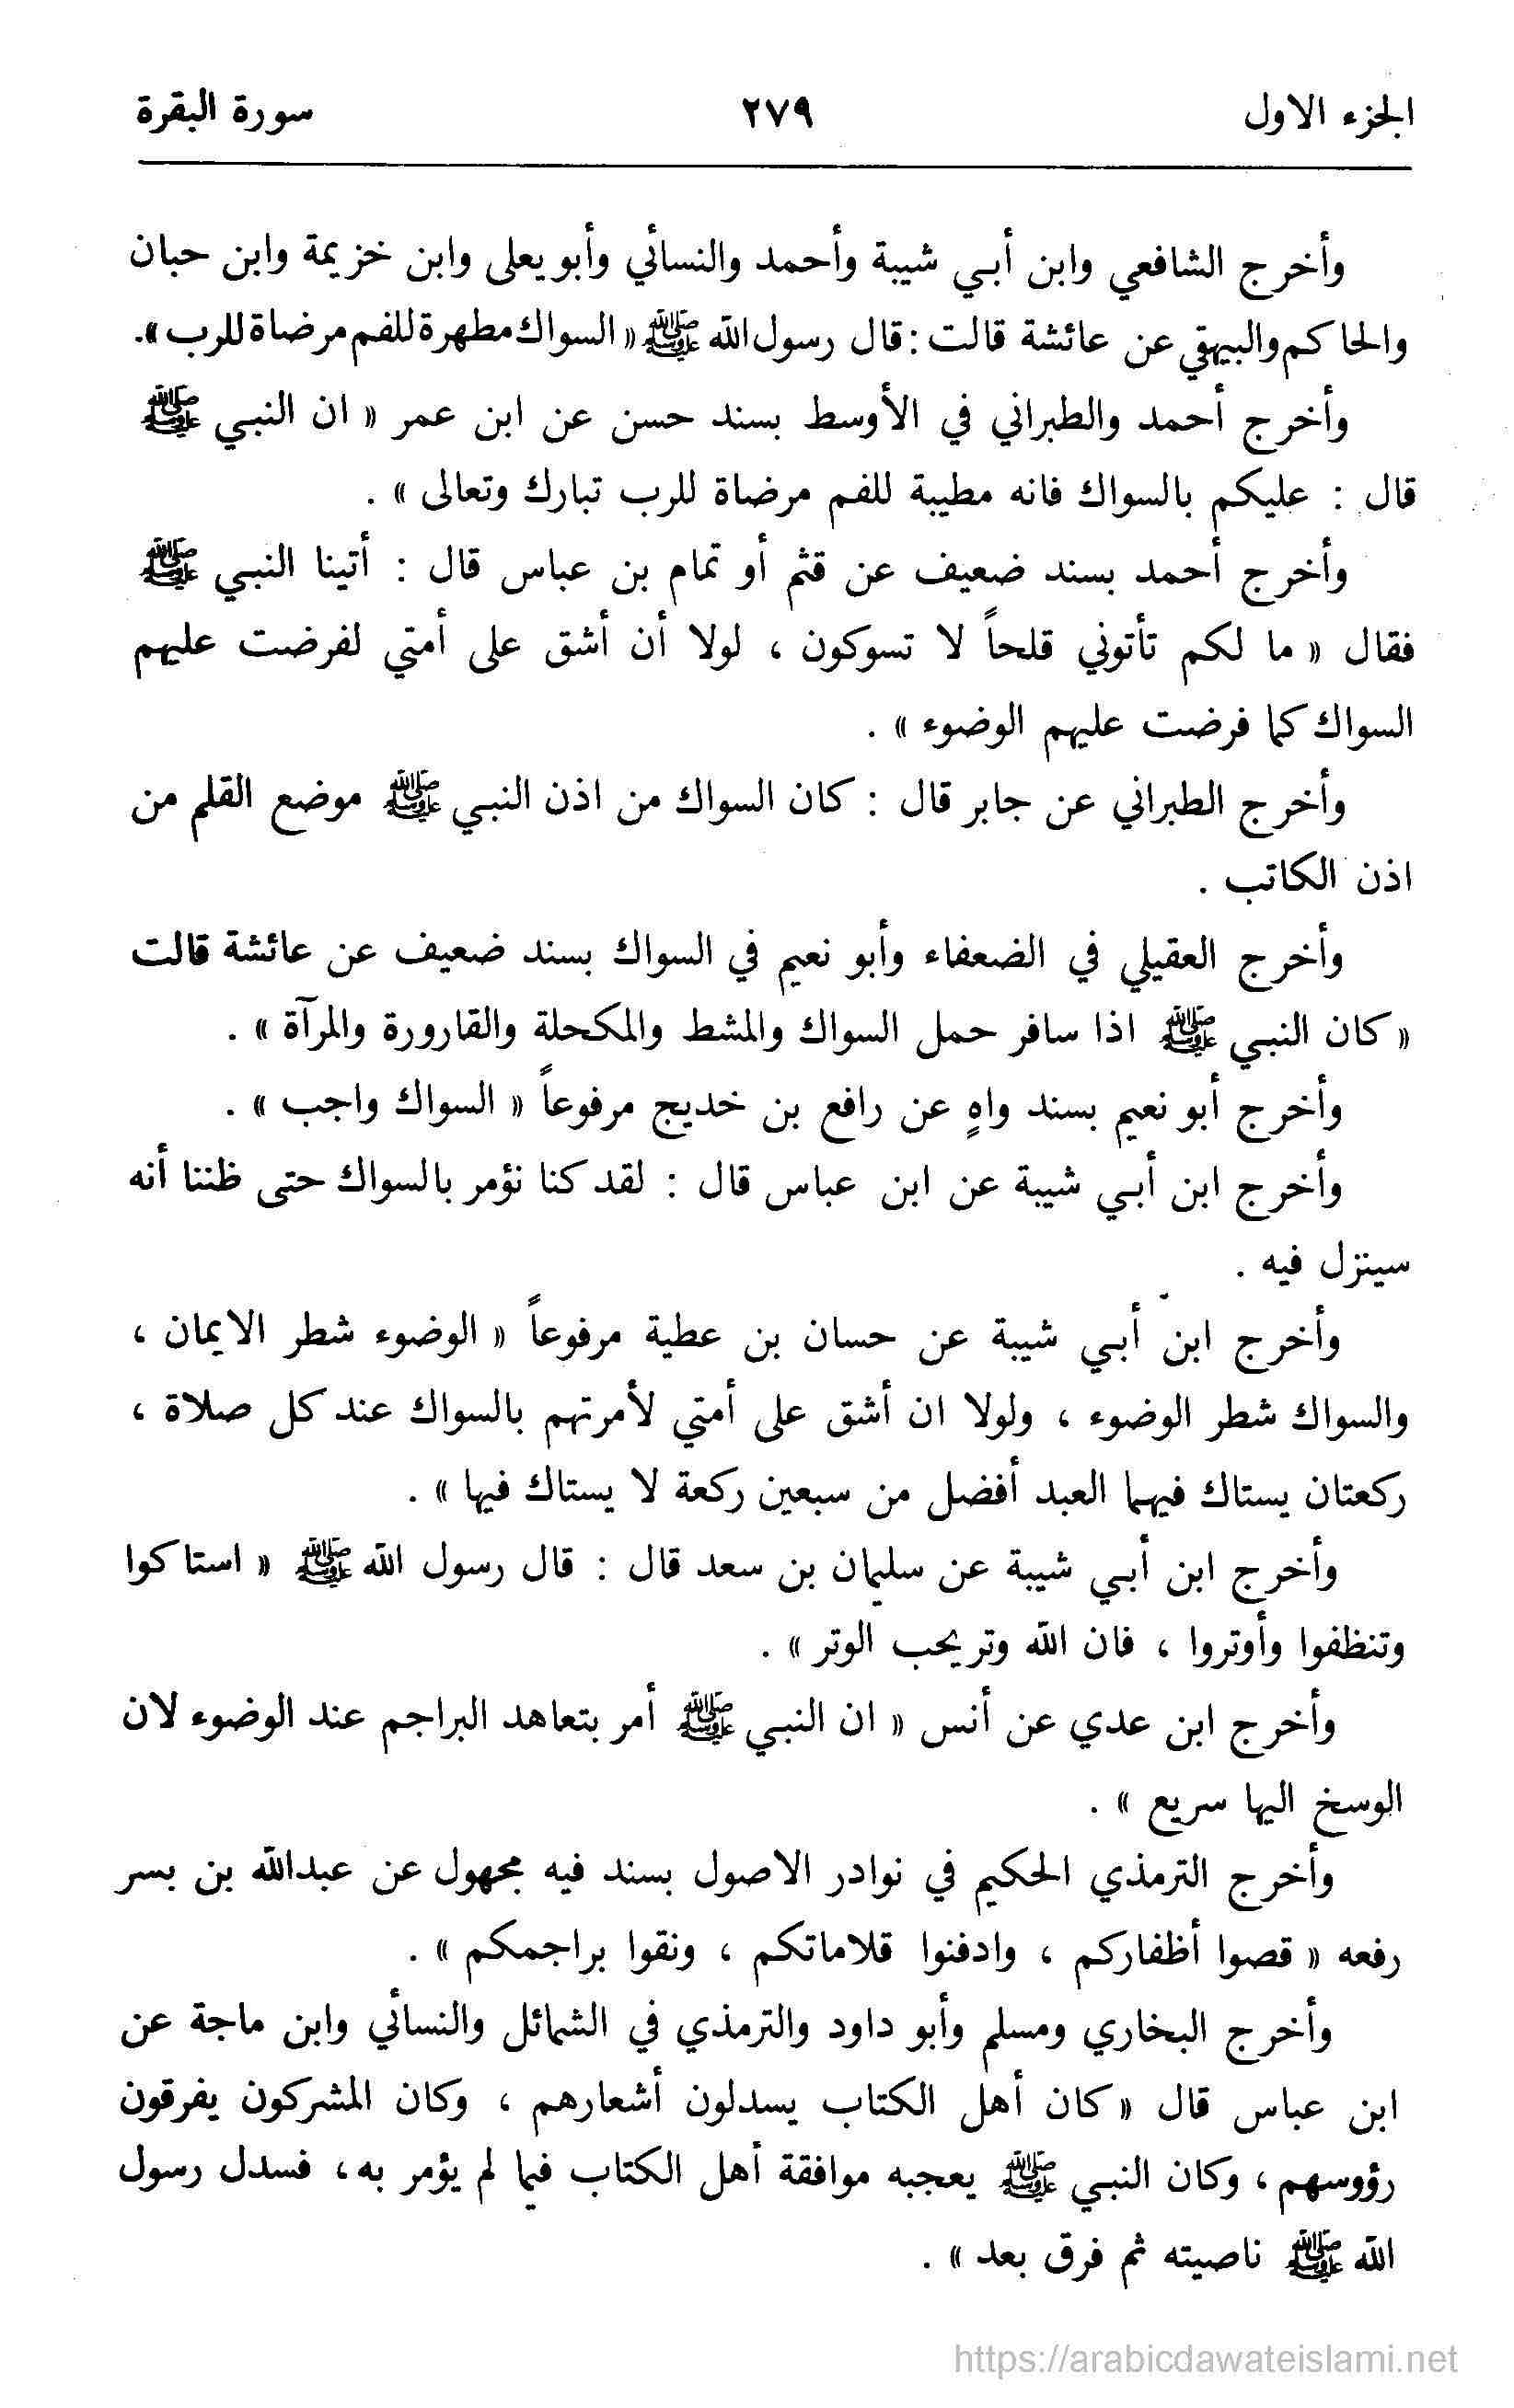 الجزء الاول ٢٧٩ سورة البقرة
وأخرج الشافعي وابن أبي شيبة وأحمد والنسائي وأبو يعلى وابن خزيمة وابن حبان
والحاكم والبيهقي عن عائشة قالت : قال رسول الله ﷺ « السواك مطهرة للفم مرضاة للرب ».
وأخرج أحمد والطبراني في الأوسط بسند حسن عن ابن عمر « ان النبي ﷺ
قال : عليكم بالسواك فانه مطيبة للفم مرضاة للرب تبارك وتعالى » .
وأخرج أحمد بسند ضعيف عن قثم أو تمام بن عباس قال : أتينا النبي ﷺ
فقال « ما لكم تأتوني قلحاً لا تسوكون ، لولا أن أشق على أمتي لفرضت عليهم
السواك كما فرضت عليهم الوضوء » .
وأخرج الطبراني عن جابر قال : كان السواك من اذن النبي ﷺ موضع القلم من
اذن الكاتب .
وأخرج العقيلي في الضعفاء وأبو نعيم في السواك بسند ضعيف عن عائشة قالت
« كان النبي ﷺ اذا سافر حمل السواك والمشط والمكحلة والقارورة والمرآة » .
وأخرج أبو نعيم بسند واهٍ عن رافع بن خديج مرفوعاً « السواك واجب » .
وأخرج ابن أبي شيبة عن ابن عباس قال : لقد كنا نؤمر بالسواك حتى ظننا أنه
سينزل فيه .
وأخرج ابن أبي شيبة عن حسان بن عطية مرفوعاً « الوضوء شطر الايمان ،
والسواك شطر الوضوء ، ولولا ان أشق على أمتي لأمرتهم بالسواك عند كل صلاة ،
ركعتان يستاك فيهما العبد أفضل من سبعين ركعة لا يستاك فيها » .
وأخرج ابن أبي شيبة عن سليمان بن سعد قال : قال رسول الله ﷺ « استاكوا
وتنظفوا وأوتروا ، فان الله وتر يحب الوتر » .
وأخرج ابن عدي عن أنس « ان النبي ﷺ أمر بتعاهد البراجم عند الوضوء لان
الوسخ اليها سريع » .
وأخرج الترمذي الحكيم في نوادر الاصول بسند فيه مجهول عن عبدالله بن بسر
رفعه « قصوا أظفاركم ، وادفنوا قلاماتكم ، ونقوا براجمكم » .
وأخرج البخاري ومسلم وأبو داود والترمذي في الشمائل والنسائي وابن ماجة عن
ابن عباس قال « كان أهل الكتاب يسدلون أشعارهم ، وكان المشركون يفرقون
رؤوسهم ، وكان النبي ﷺ يعجبه موافقة أهل الكتاب فيما لم يؤمر به ، فسدل رسول
الله ﷺ ناصيته ثم فرق بعد » .
https://arabicdawateislami.net